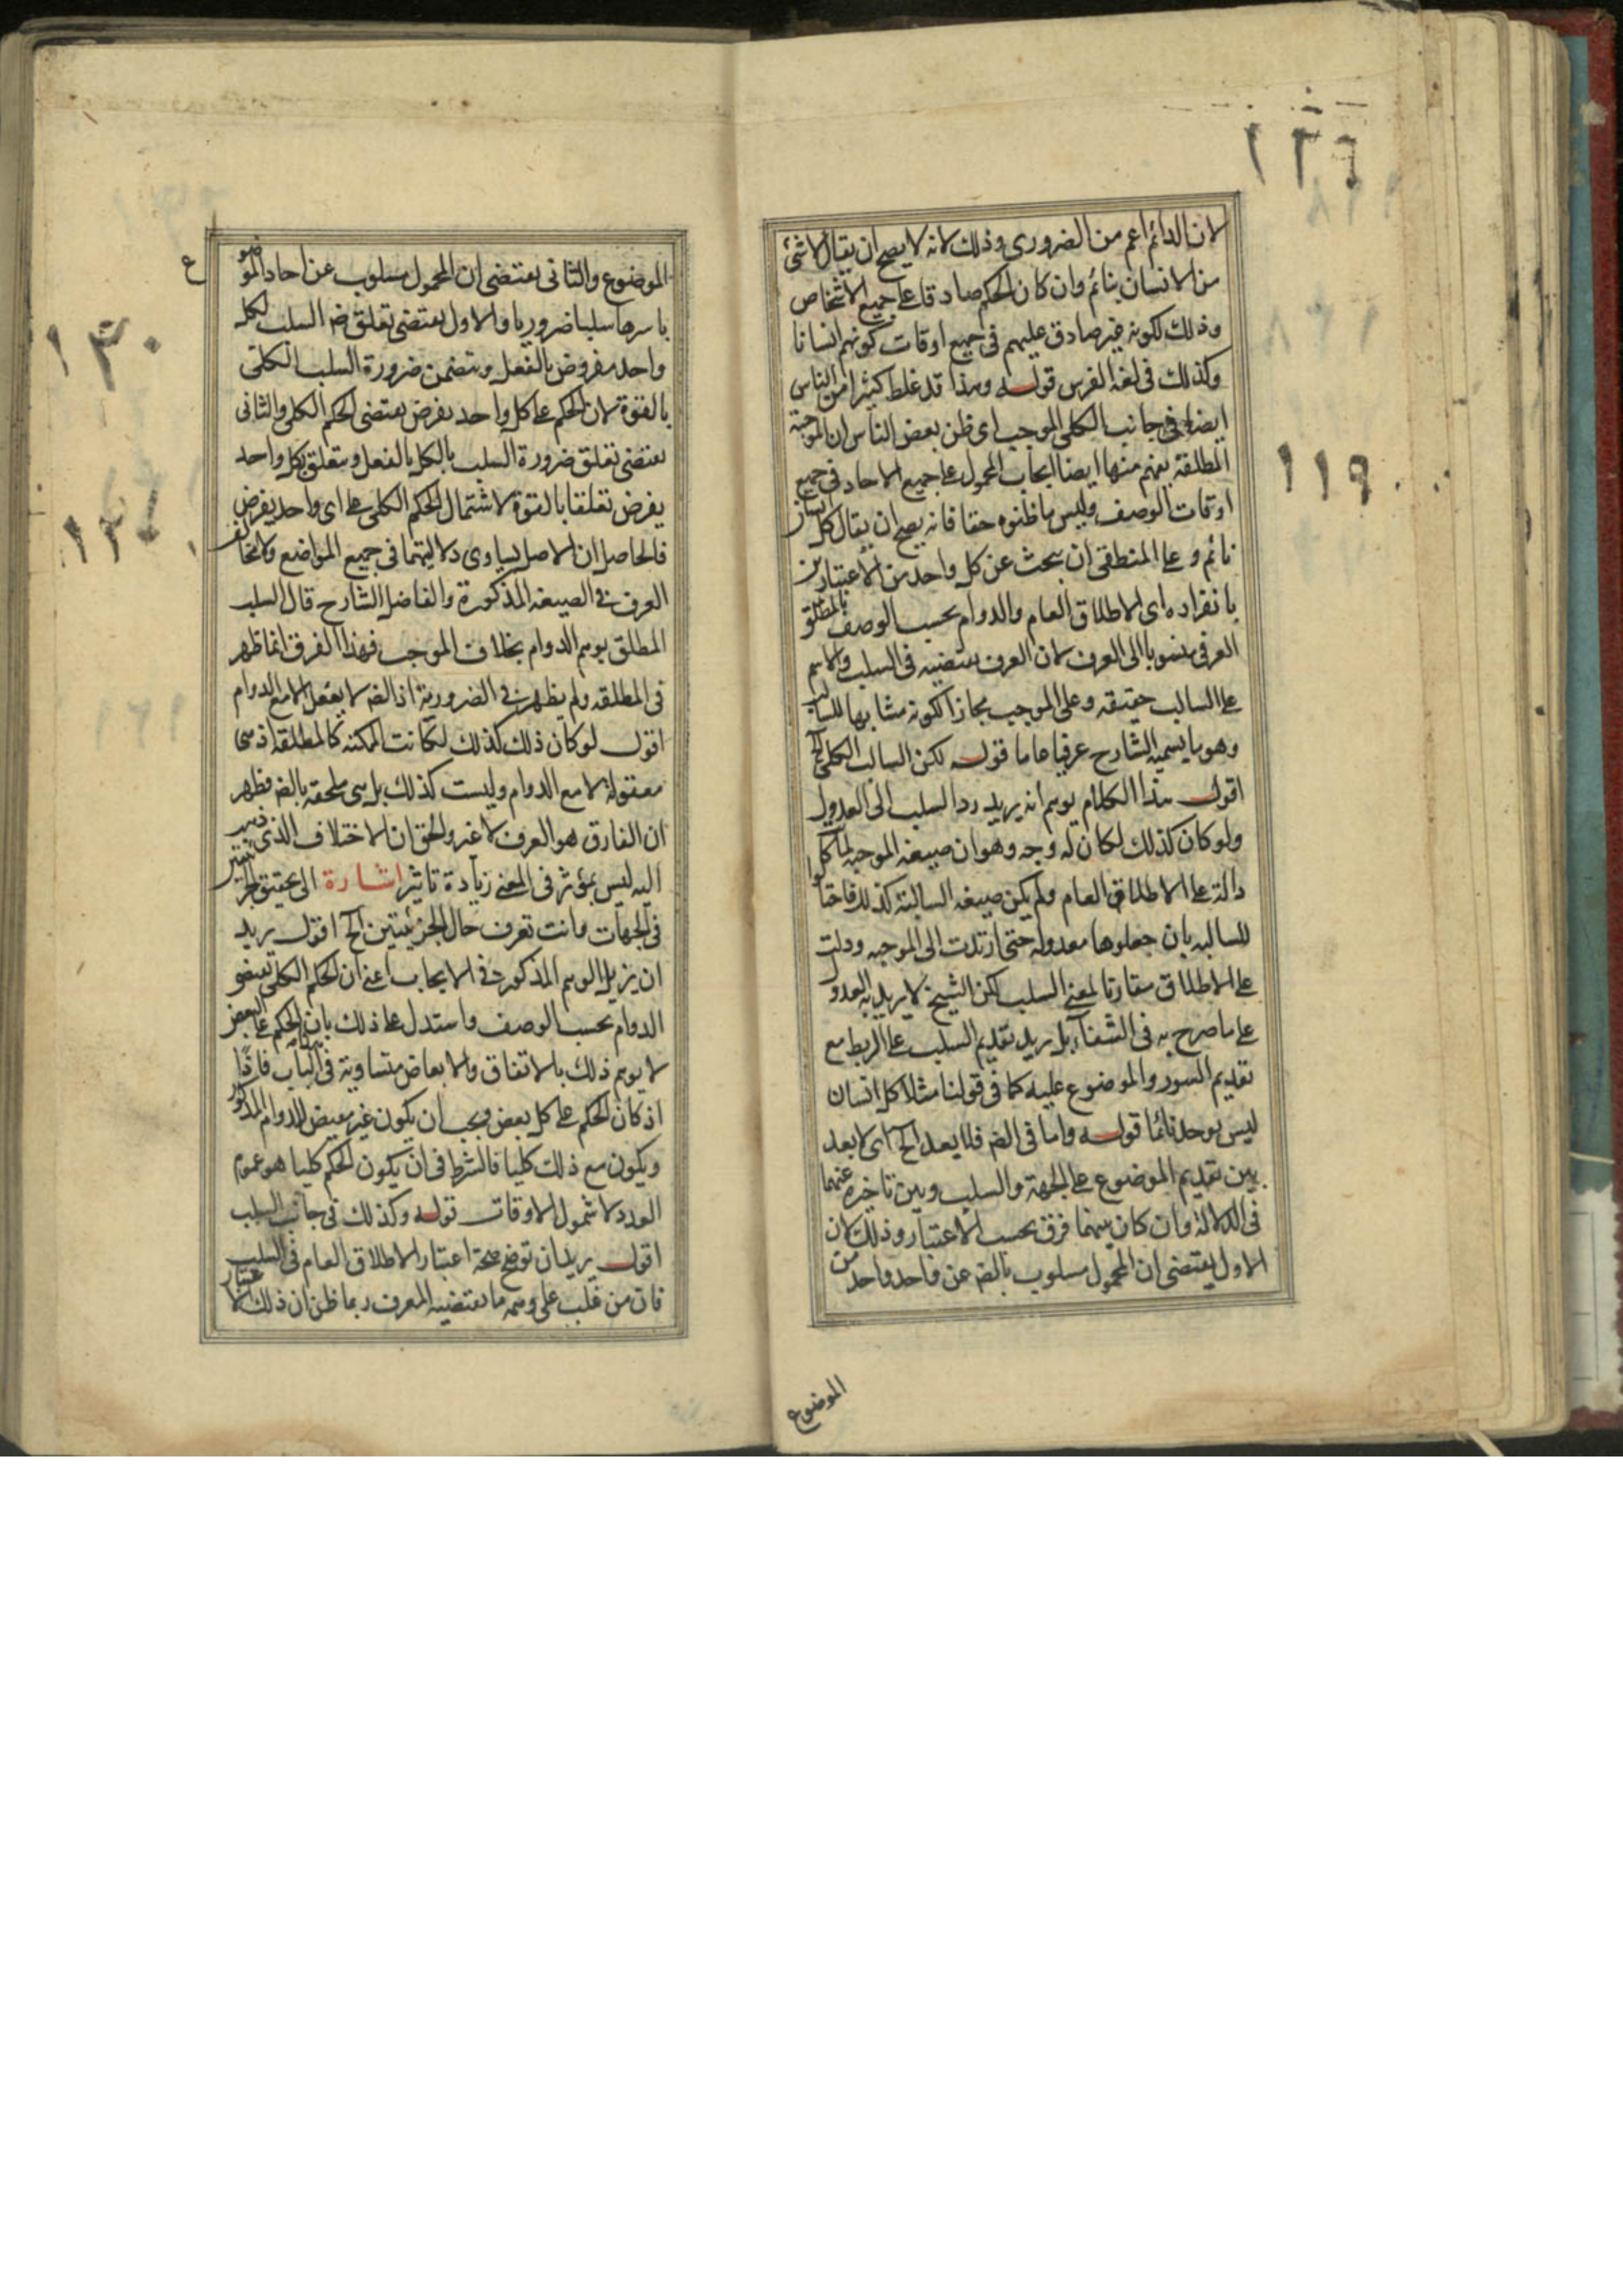 ١٢٦
١١٩
لان الدائم اعم من الضروري وذلك لانه لا يصح ان يقال لا شئ
من الانسان بنائم وان كان الحكم صادقا على جميع الاشخاص
وذلك لكونه غير صادق عليهم في جميع اوقات كونهم انسانا
وكذلك في لغة الفرس قوله وهذا قد غلط كثيرا من الناس
ايضا في جانب الكلي الموجب اى ظن بعض الناس ان الموجبة
المطلقة يفهم منها ايضا ايجاب المحمول على جميع الاحاد في جميع
اوقات الوصف وليس ما ظنوه حقا فانه يصح ان يقال كل انسان
نائم وعلى المنطقي ان يبحث عن كل واحد من الاعتبارين
بانفراده اى الاطلاق العام والدوام بحسب الوصف
العرفي منسوبا الى العرف لان العرف يقتضيه في السلب والاسم
على السالب حقيقة وعلى الموجب مجازا لكونه مشابها للسالب
وهو ما يسميه الشارح عرفيا عاما قوله لكن السالب الكلي الخ
اقول هذا الكلام يوهم انه يريد رد السلب الى العدول
ولو كان كذلك لكان له وجه وهو ان صيغة الموجبة لما كان
دالة على الاطلاق العام ولم يكن صيغة السالبة كذلك
للسالبه بان جعلوها معدولة حتى ارتدت الى الموجبه ودلت
على الاطلاق مقارنا لمعنى السلب لكن الشيخ لا يريد به العدول
على ما صرح به في الشفاء بل يريد تقديم السلب على الربط مع
تقديم السور والموضوع عليه كما في قولنا مثلا كل انسان
ليس يوجد نائما قوله واما في الضر فلا بعد الخ اى لا بعد
بين تقديم الموضوع على الجهة والسلب وبين تاخيره عنهما
في الدلالة وان كان بينهما فرق بحسب الاعتبار وذلك لان
الاول يقتضى ان المحمول مسلوب بالضر عن واحد واحد من
الموضوع
١٣٠
الموضوع والثانى يقتضى ان المحمول مسلوب عن احاد الموضوع
باسرها سلبا ضروريا والاول يقتضى تعلق ضر السلب لكل
واحد مفروض بالفعل ويتضمن ضرورة السلب الكلى
بالقوة لان الحكم على كل واحد يفرض يقتضى الحكم الكلى والثانى
يقتضى تعلق ضرورة السلب بالكل بالفعل ويتعلق بكل واحد
يفرض تعلقا بالقوة لاشتمال الحكم الكلى على اى واحد يفرض
فالحاصل ان الاصل تساوى دلالتيهما في جميع المواضع ولا تخالف
العرف في الصيغه المذكورة والفاضل الشارح قال السلب
المطلق يوهم الدوام بخلاف الموجب فهذا الفرق انما ظهر
في المطلقه ولم يظهر في الضرورية اذ الضر لا يعقل الا مع الدوام
اقول لو كان ذلك كذلك لكانت الممكنه كالمطلقه اذ هى
معقولة لا مع الدوام وليست كذلك بل هى ملحقه بالضر فظهر
ان الفارق هو العرف لا غير والحق ان الاختلاف الذى ذهب
اليه ليس بمؤثر في المعنى زيادة تاثير اشارة الى تحقيق الجزئيتين
في الجهات وانت تعرف حال الجزئيتين الخ اقول يريد
ان يزيل الوهم المذكور في الايجاب اعنى ان الحكم الكلى يقتضى
الدوام بحسب الوصف واستدل على ذلك بان الحكم على البعض
لا يوهم ذلك بالاتفاق والابعاض متساوية في الباب فاذا
اذ كان الحكم على كل بعض وجب ان يكون غير مقتض للدوام المذكور
ويكون مع ذلك كليا فالشرط في ان يكون الحكم كليا هو عموم
العدد لا شمول الاوقات قوله وكذلك في جانب السلب
اقول يريد ان توضح صحة اعتبار الاطلاق العام في السلب
فان من غلب على وهمه ما يقتضيه العرف ربما ظن ان ذلك